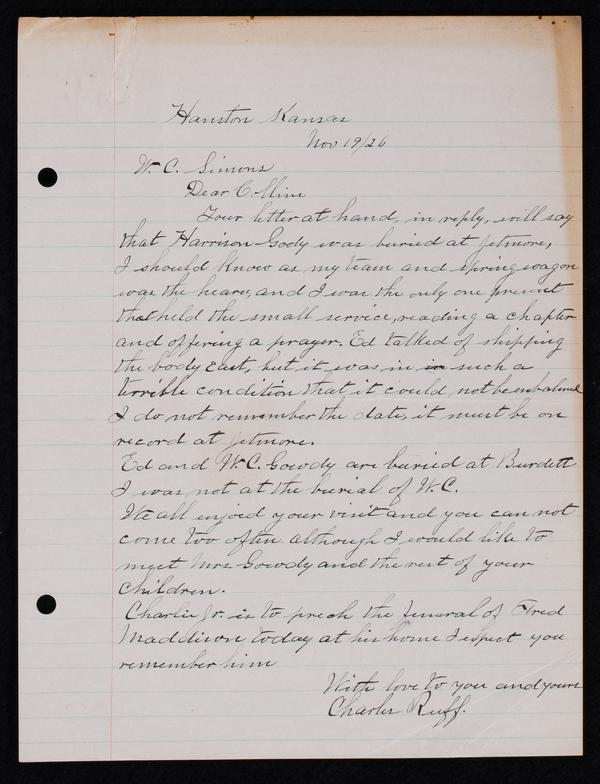 Hanston Kansas
Nov 19/26
W. C. Simons
Dear C. Mins
Your letter at hand, in reply, will say
that Harrison Gody was buried at Jetmore,
I should know as my team and spring wagon
was the hears, and I was the only one present
that held the small service, reading a chapter
and offering a prayer. Ed talked of shipping
the body East, but it was in in such a
terrible condition that it could not be enbalmed
I do not remember the date, it must be on
record at Jetmore.
Ed and W. C. Gowdy are buried at Burdett
I was not at the burial of W. C.
We all enjoid your visit and you can not
come too often. although I would like to
meet Mrs. Gowdy and the rest of your
Children.
Charlie Jr. is to prech the funeral of Fred
Maddison today at his home I expect you
remember him
With love to you and yours
Charles Ruff.